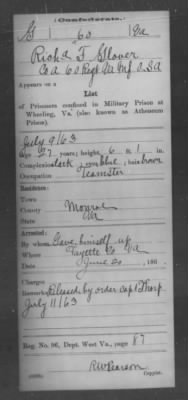 (Confederate.)
G 60 Va
Richd T. Glover
Co A 60 Regt Va Inf. C.S.A
Appears on a
List
of Prisoners confined in Military Prison at
Wheeling, Va. (also known as Atheneum
Prison).
July 9/63
Age 27 years; height, 6 ft 1 in.
Complexion dark; eyes blue; hair brown
Occupation Teamster
Residence:
Town
County Monroe
State Va
Arrested:
By whom Gave himself up
Where Fayette Co Va
Date June 20, 186
Charges
Remarks: Released by order Capt Thorp
July 11/63
Reg. No. 96, Dept. West Va., page 87
R W Pearson
Copyist.